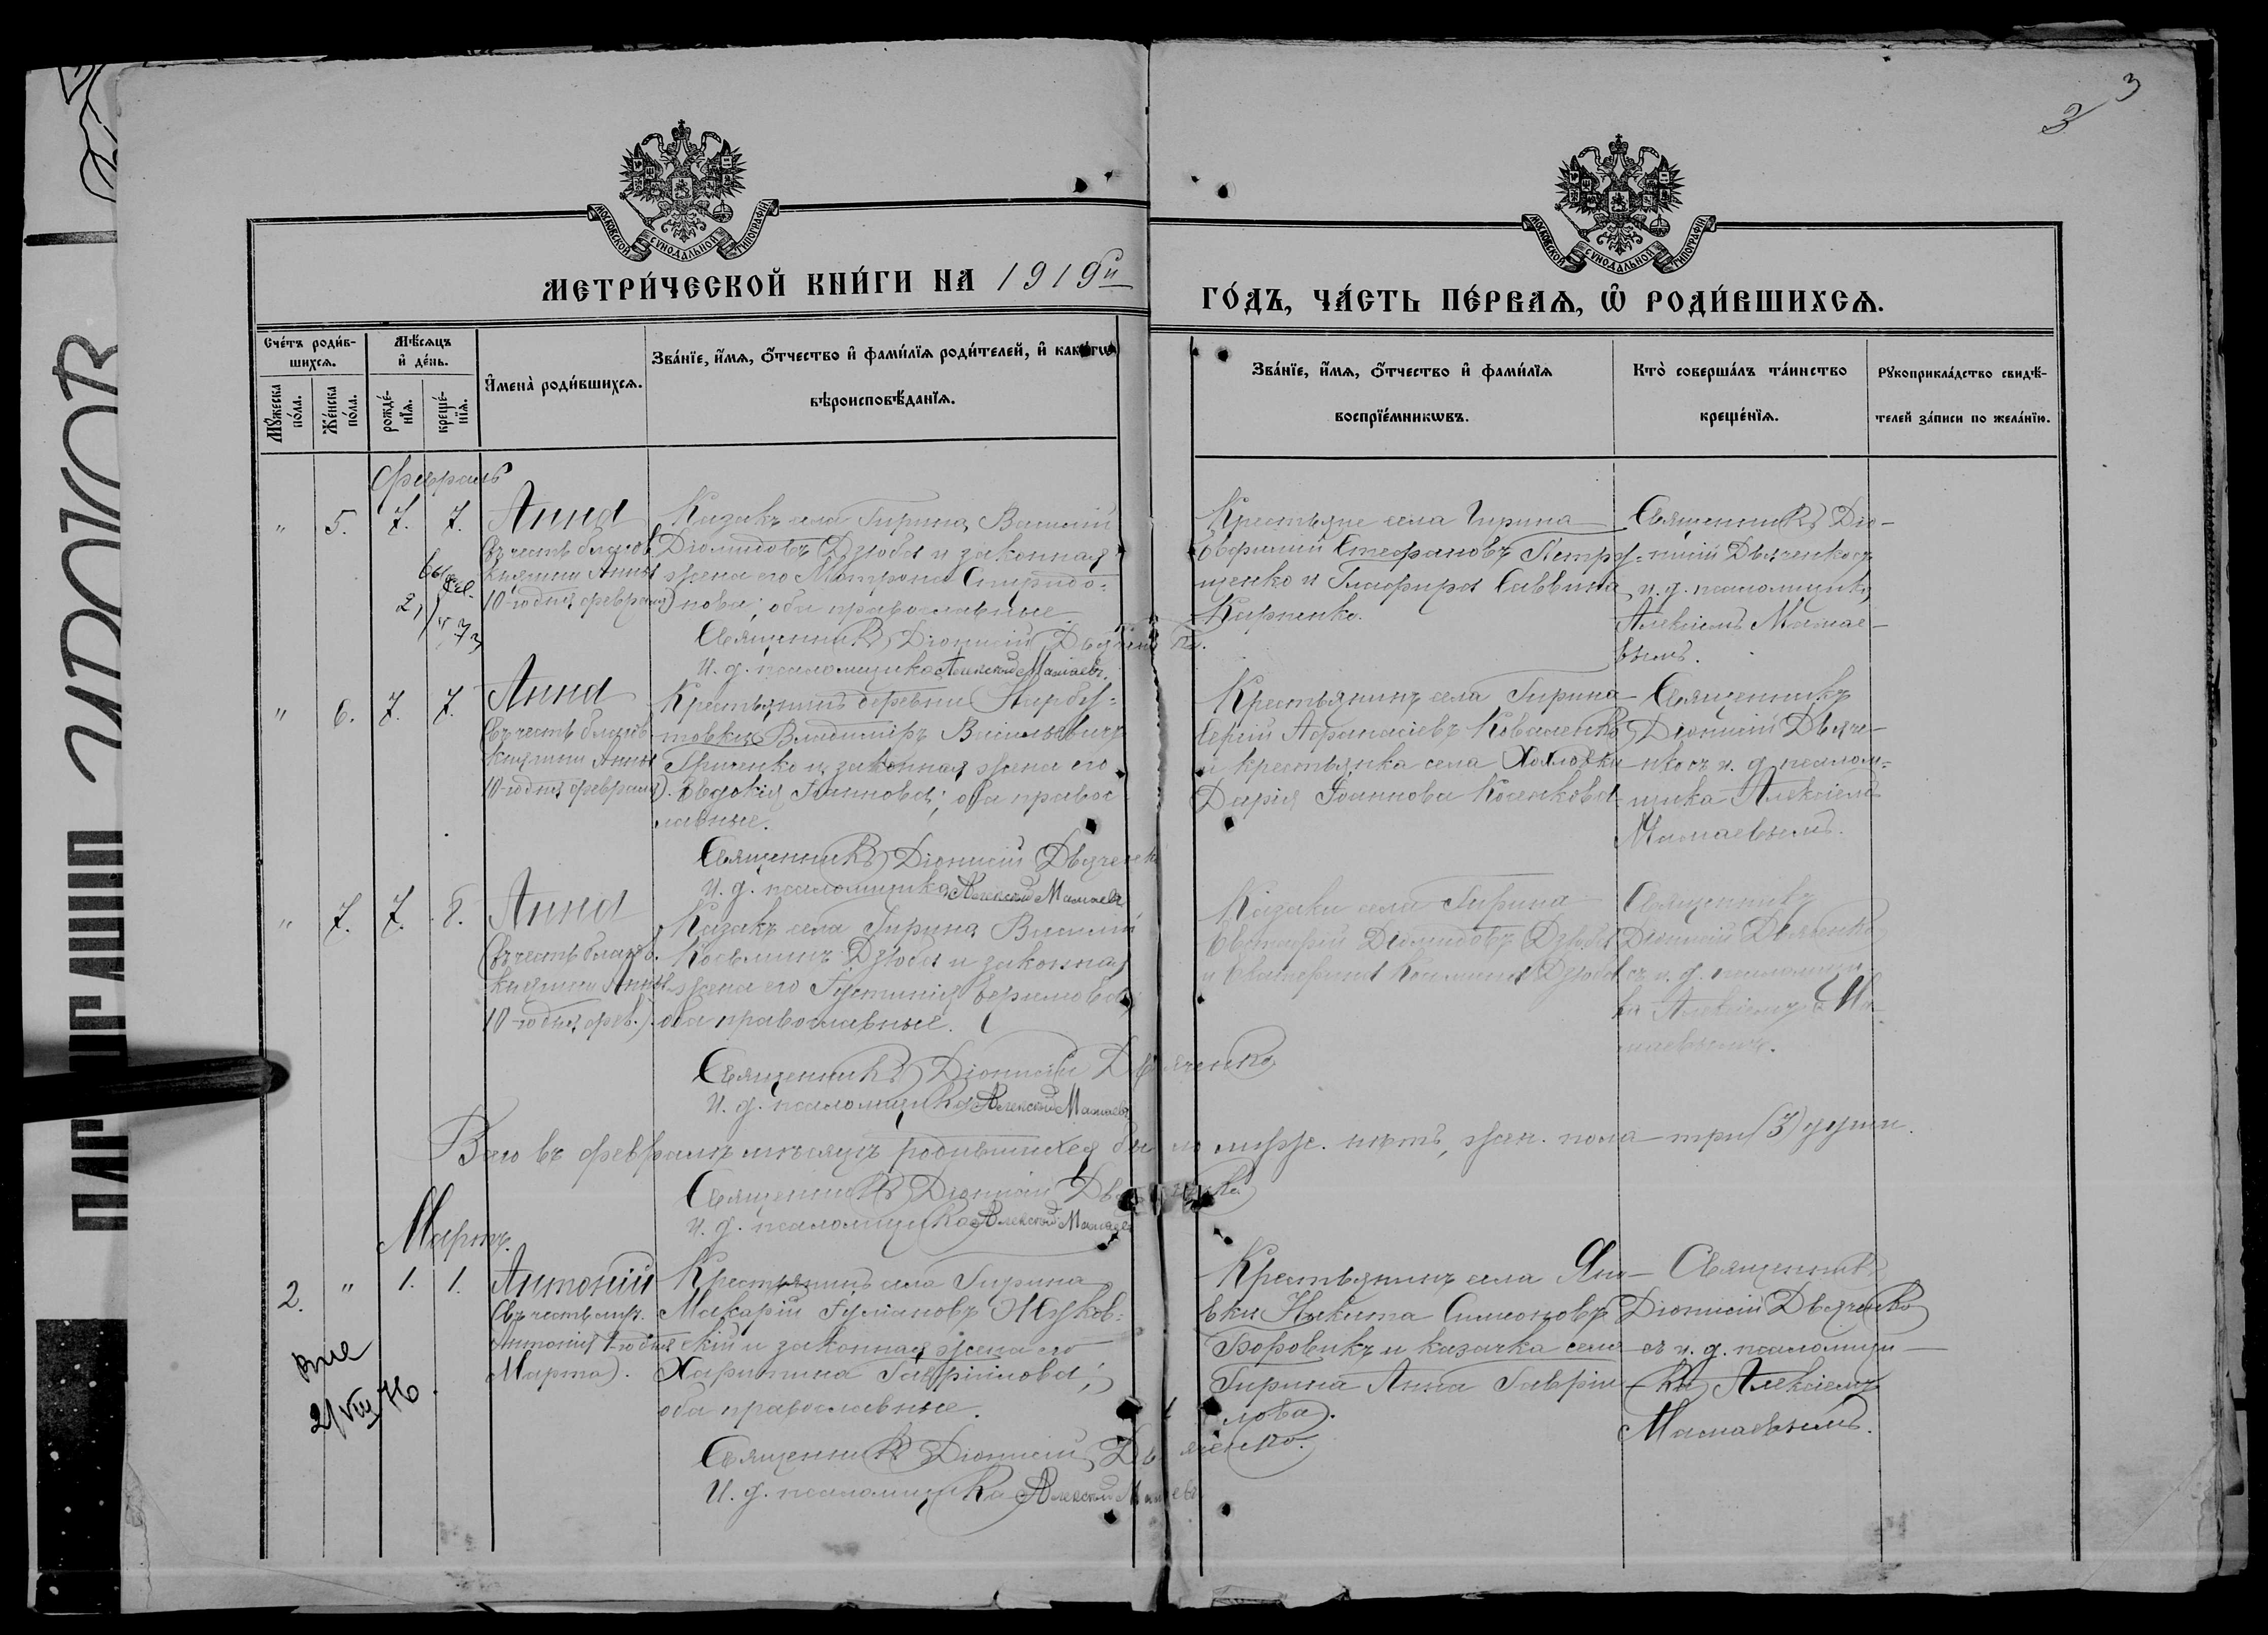 3
3
МОСКОВСКОЙ СѴНОДАЛЬНОЙ ТИПОГРАФІИ
МОСКОВСКОЙ СѴНОДАЛЬНОЙ ТИПОГРАФІИ
МЕТРИ́ЧЕСКОЙ КНИ́ГИ НА 1919й
ГО́ДЪ, ЧА́СТЬ ПЕ́РВАѦ, Ѡ҆ РОДИ́ВШИХСѦ.
Сче́тъ роди́в-
шихсѧ.
Мꙋ́жеска
по́ла.
Же́нска
по́ла.
Мѣ́сѧцъ
и҆ де́нь.
рожде́-
нїѧ.
креще́-
нїѧ.
И҆мена̀ роди́вшихсѧ.
Зва́нїе, и҆́мѧ, ѻ҆́тчество и҆ фами́лїѧ роди́телей, и҆ како́гѡ
вѣроисповѣ́данїѧ.
Зва́нїе, и҆́мѧ, ѻ҆́тчество и҆ фами́лїѧ
воспрїе́мникѡвъ.
Кто̀ соверша́лъ та́инство
креще́нїѧ.
Рꙋкоприкла́дство свидѣ́-
телей за́писи по жела́нїю.
Февраль
" 5. 7. 7. Анна
(въ честь благов.
княгини Анны
10-го дня февраля)
Казакъ села Гирина Василій
Діомидовъ Дзюба и законная
жена его Матрона Спиридо-
нова; оба православные.
Священникъ Діонисій Дьяченко.
И. д. псаломщика Алексій Мамаевъ.
Крестьяне села Гирина
Евфимій Стефановъ Петру-
щенко и Глафира Саввина
Карпенко.
Священникъ Діо-
нисій Дьяченко съ
и. д. псаломщика
Алексіемъ Мамае-
вымъ.
" 6. 7. 7. Анна
(въ честь благов.
княгини Анны
10-го дня февраля).
Крестьянинъ деревни
товки Владиміръ Васильевичъ
Гриченко и законная жена его
Евдокія Іоаннова; оба правос
лавные.
Священникъ Діонисій Дьяченко
И. д. псаломщика Алексій Мамаевъ
Крестьянинъ села Гирина
Сергій Афанасіевъ Коваленко
и крестьянка села
Дарія Іоаннова
Священникъ
Діонисій Дьяче-
нко съ и. д. псалом-
щика Алексіемъ
Мамаевымъ.
" 7. 7. 8. Анна
(въ честь благов.
княгини Анны
10-го дня фев.).
Казакъ села Гирина Василій
Косьминъ Дзюба и законная
жена его Іустинія
оба православные.
Священникъ Діонисій Дьяченко
И. д. псаломщика Алексій Мамаевъ
Казаки села Гирина
Діомидовъ Дзюба
и Екатерина Косьмина Дзюба
Священникъ
Діонисій Дьяченко
съ и. д. псаломщи
ка Алексіемъ Ма-
маевымъ.
Всего въ февралѣ мѣсяцѣ родившихся было мужс. нѣтъ, жен. пола три (3) души.
Священникъ Діонисій Дьяченко
И. д. псаломщика Алексій Мамаевъ
Мартъ.
2. " 1. 1. Антоній
(въ честь муч.
Антонія 1-го дня
Марта).
Крестьянинъ села Гирина
Макарій Іуліановъ Жуков-
скій и законная жена его
Харитина Гавріилова;
оба православные.
Священникъ Діонисій Дьяченко.
И. д. псаломщика Алексій Мамаевъ
Крестьянинъ села
вки Никита Симеоновъ
Боровикъ и казачка села
Гирина Анна Гавріи-
лова.
Священникъ
Діонисій Дьяченко
съ и. д. псаломщи-
ка Алексіемъ
Мамаевымъ.
21 VIII 76